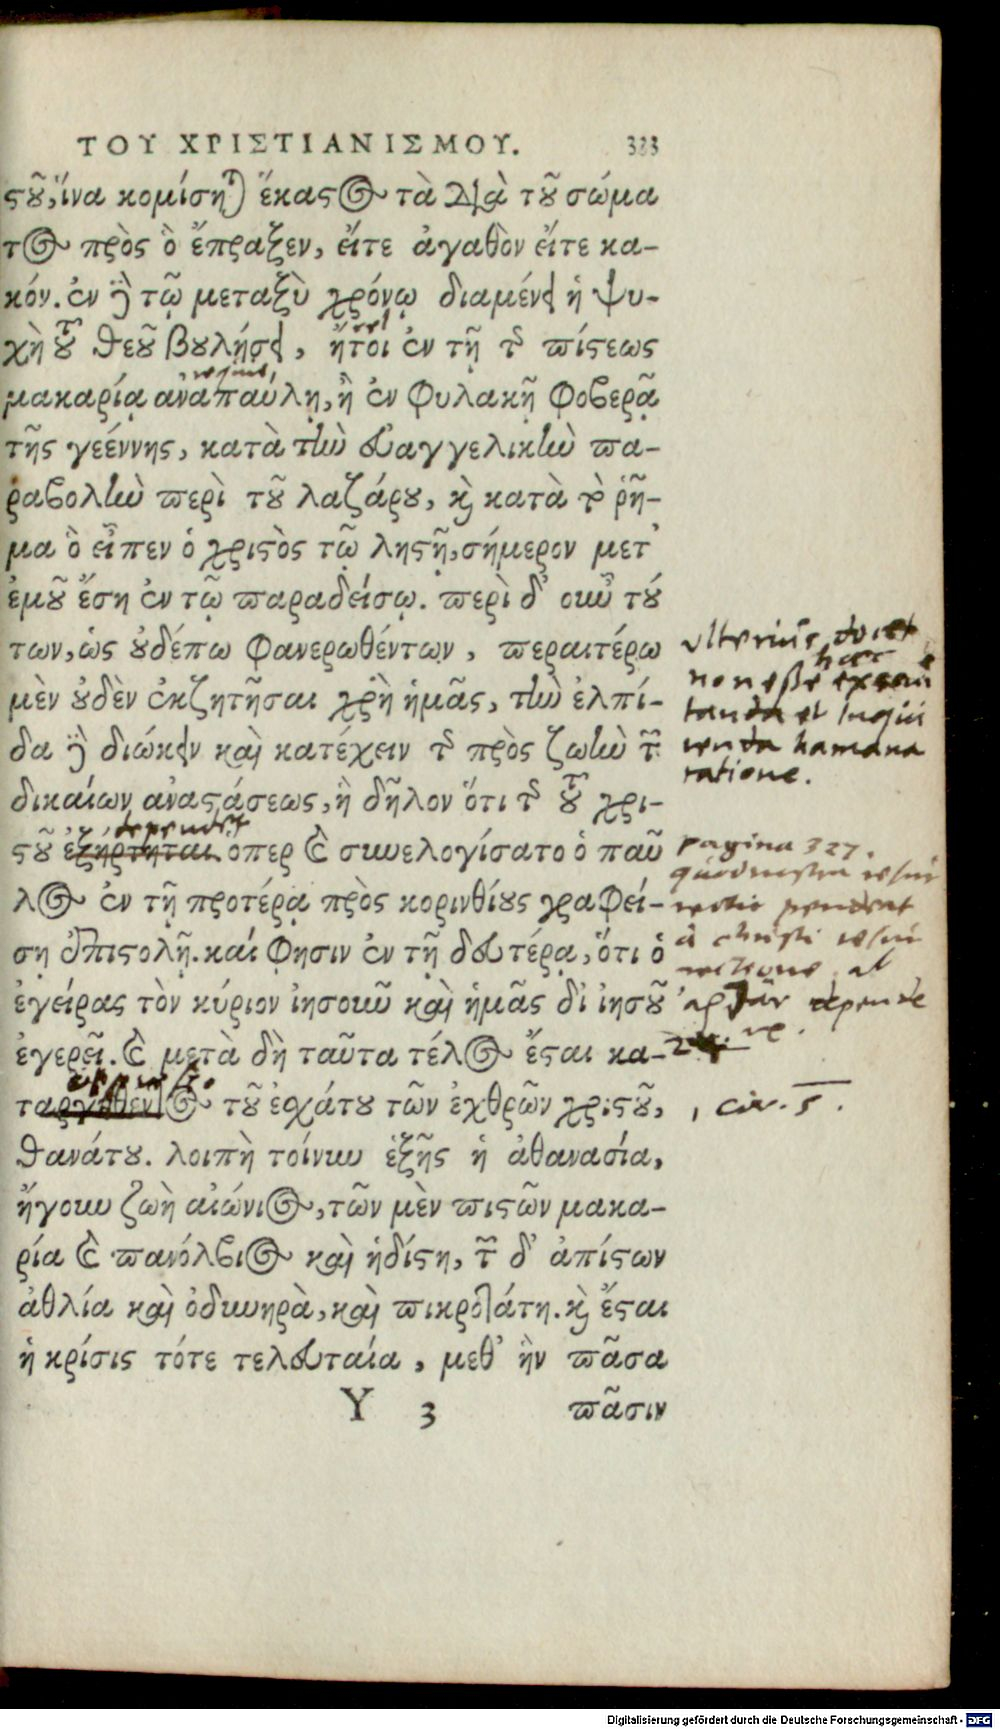 ΤΟΥ ΧΡΙΣΤΙΑΝΙΣΜΟΥ. 333
στοῦ, ἵνα κομίσηται ἕκαστος τὰ διὰ τοῦ σώμα
τος πρὸς ὃ ἔπραξεν, εἴτε ἀγαθὸν εἴτε κα-
κόν. ἐν δὲ τῷ μεταξὺ χρόνῳ διαμένει ἡ ψυ-
χὴ τοῦ θεοῦ βουλήσει, ἤτοι ἐν τῇ τῆς πίστεως
vel
μακαρίᾳ ἀναπαύλῃ, ἢ ἐν φυλακῇ φοβερᾷ
τῆς γεέννης, κατὰ τὴν εὐαγγελικὴν πα-
ραβολὴν περὶ τοῦ λαζάρου, καὶ κατὰ τὸ ῥῆ-
μα ὃ εἶπεν ὁ χριστὸς τῷ λῃστῇ, σήμερον μετ'
ἐμοῦ ἔσῃ ἐν τῷ παραδείσῳ. περὶ δ' οὖν τού
των, ὡς οὐδέπω φανερωθέντων, περαιτέρω
μὲν οὐδὲν ἐκζητῆσαι χρὴ ἡμᾶς, τὴν ἐλπί-
δα δὲ διώκειν καὶ κατέχειν τῆς πρὸς ζωὴν τῶν
δικαίων ἀναστάσεως, ἣ δῆλον ὅτι τῆς τοῦ χρι-
dependet
στοῦ ἐξήρτηται. ὅπερ καὶ συνελογίσατο ὁ παῦ
λος ἐν τῇ προτέρᾳ πρὸς κορινθίους γραφεί-
σῃ ἐπιστολῇ. καί φησιν ἐν τῇ δευτέρᾳ, ὅτι ὁ
ἐγείρας τὸν κύριον ἰησοῦν καὶ ἡμᾶς δι' ἰησοῦ
ἐγερεῖ. καὶ μετὰ δὴ ταῦτα τέλος ἔσται κα-
ταργηθέντος τοῦ ἐσχάτου τῶν ἐχθρῶν χριστοῦ,
θανάτου. λοιπὴ τοίνυν ἑξῆς ἡ ἀθανασία,
ἤγουν ζωὴ αἰώνιος, τῶν μὲν πιστῶν μακα-
ρία καὶ πανόλβιος καὶ ἡδίστη, τῶν δ' ἀπίστων
ἀθλία καὶ ὀδυνηρὰ, καὶ πικροτάτη. καὶ ἔσται
ἡ κρίσις τότε τελευταία, μεθ' ἣν πᾶσα
Y 3 πᾶσιν
ulterius docet
hæc
non esse
et inqui
renda humana
ratione.
pagina 327.
quod nostra resur
rectio pendeat
à christi resur
rectione al
1 cor. 5.
Digitalisierung gefördert durch die Deutsche Forschungsgemeinschaft - DFG